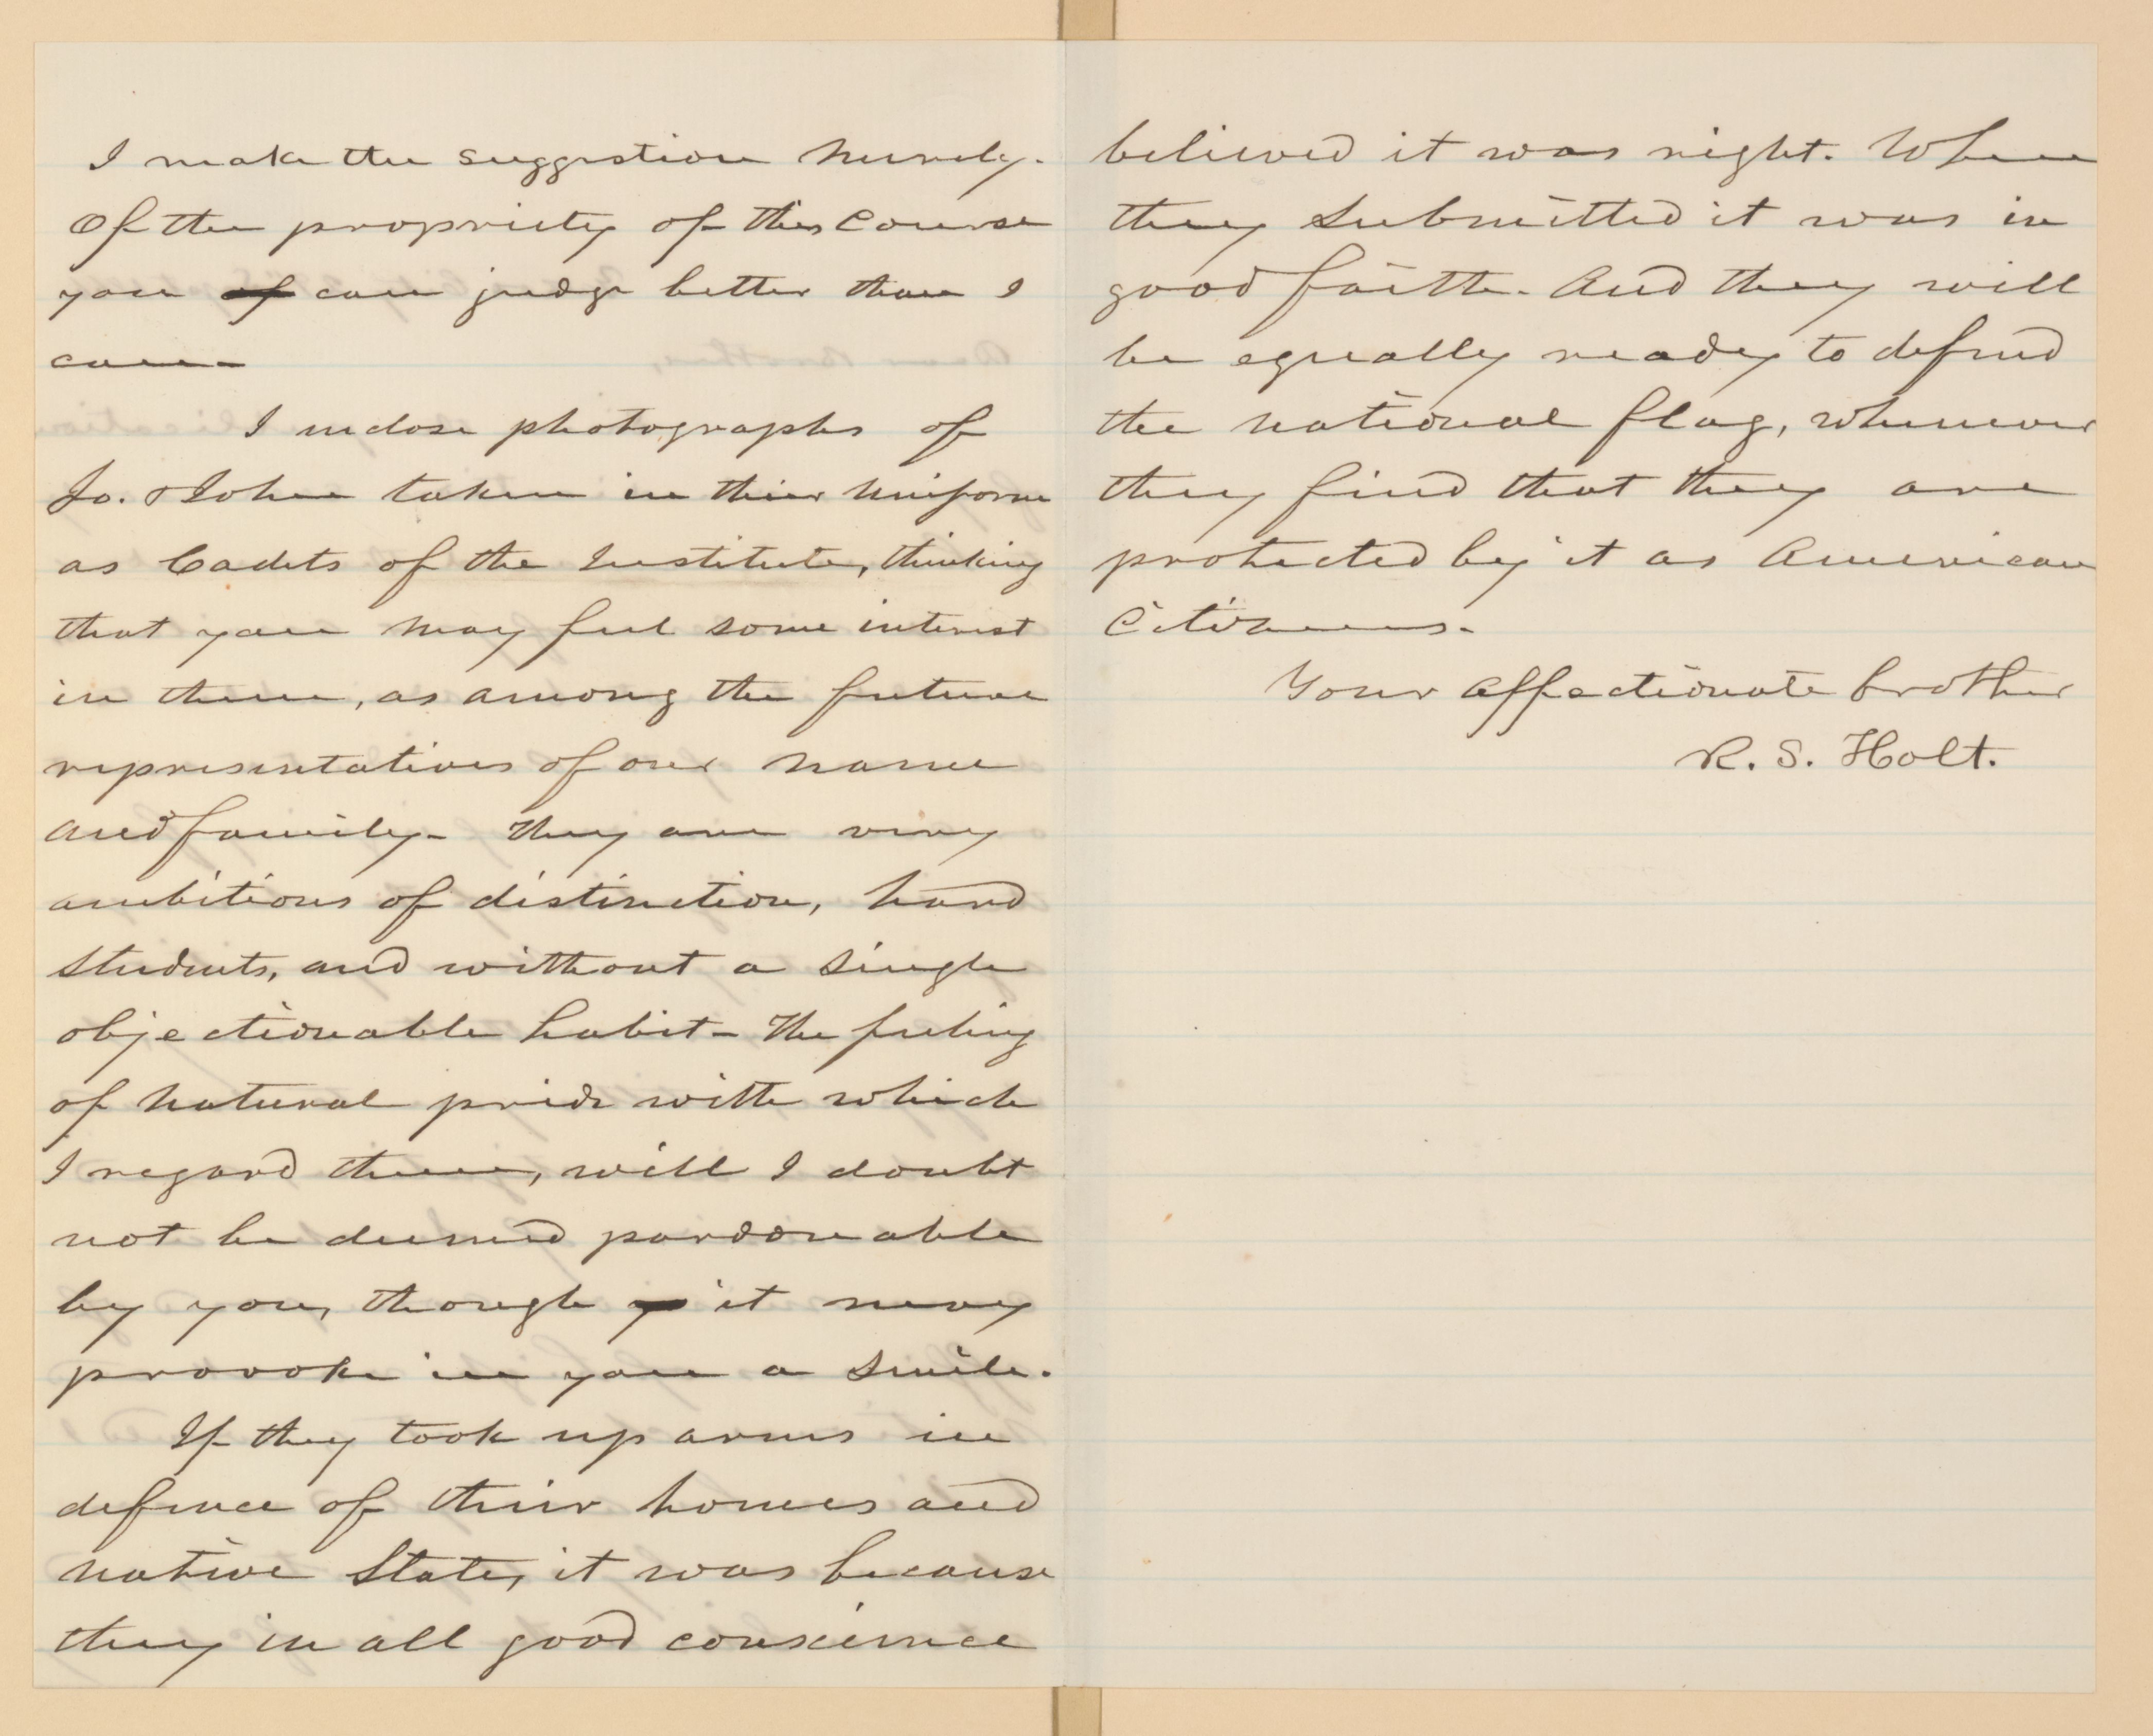 I make the suggestion merely.
Of the propriety of this Course
you of can judge better than I
can-
I inclose photographs of
Jo. & John taken in their Uniform
as Cadets of the Institute, thinking
that you may feel some interest
in them, as among the future
representatives of our name
and family- They are very
ambitious of distinction, hard
students, and without a single
objectionable habit- The feeling
of natural pride with which
I regard them, will I doubt
not be deemed pardonable
by you, though it may
provoke in you a smile.
If they took up arms in
defence of their homes and
native State, it was because
they in all good conscience
believed it was right. When
they submitted it was in
good faith. And they will
be equally ready to defend
the national flag, whenever
they find that they are
protected by it as American
Citizens.
Your affectionate brother
R. S. Holt.